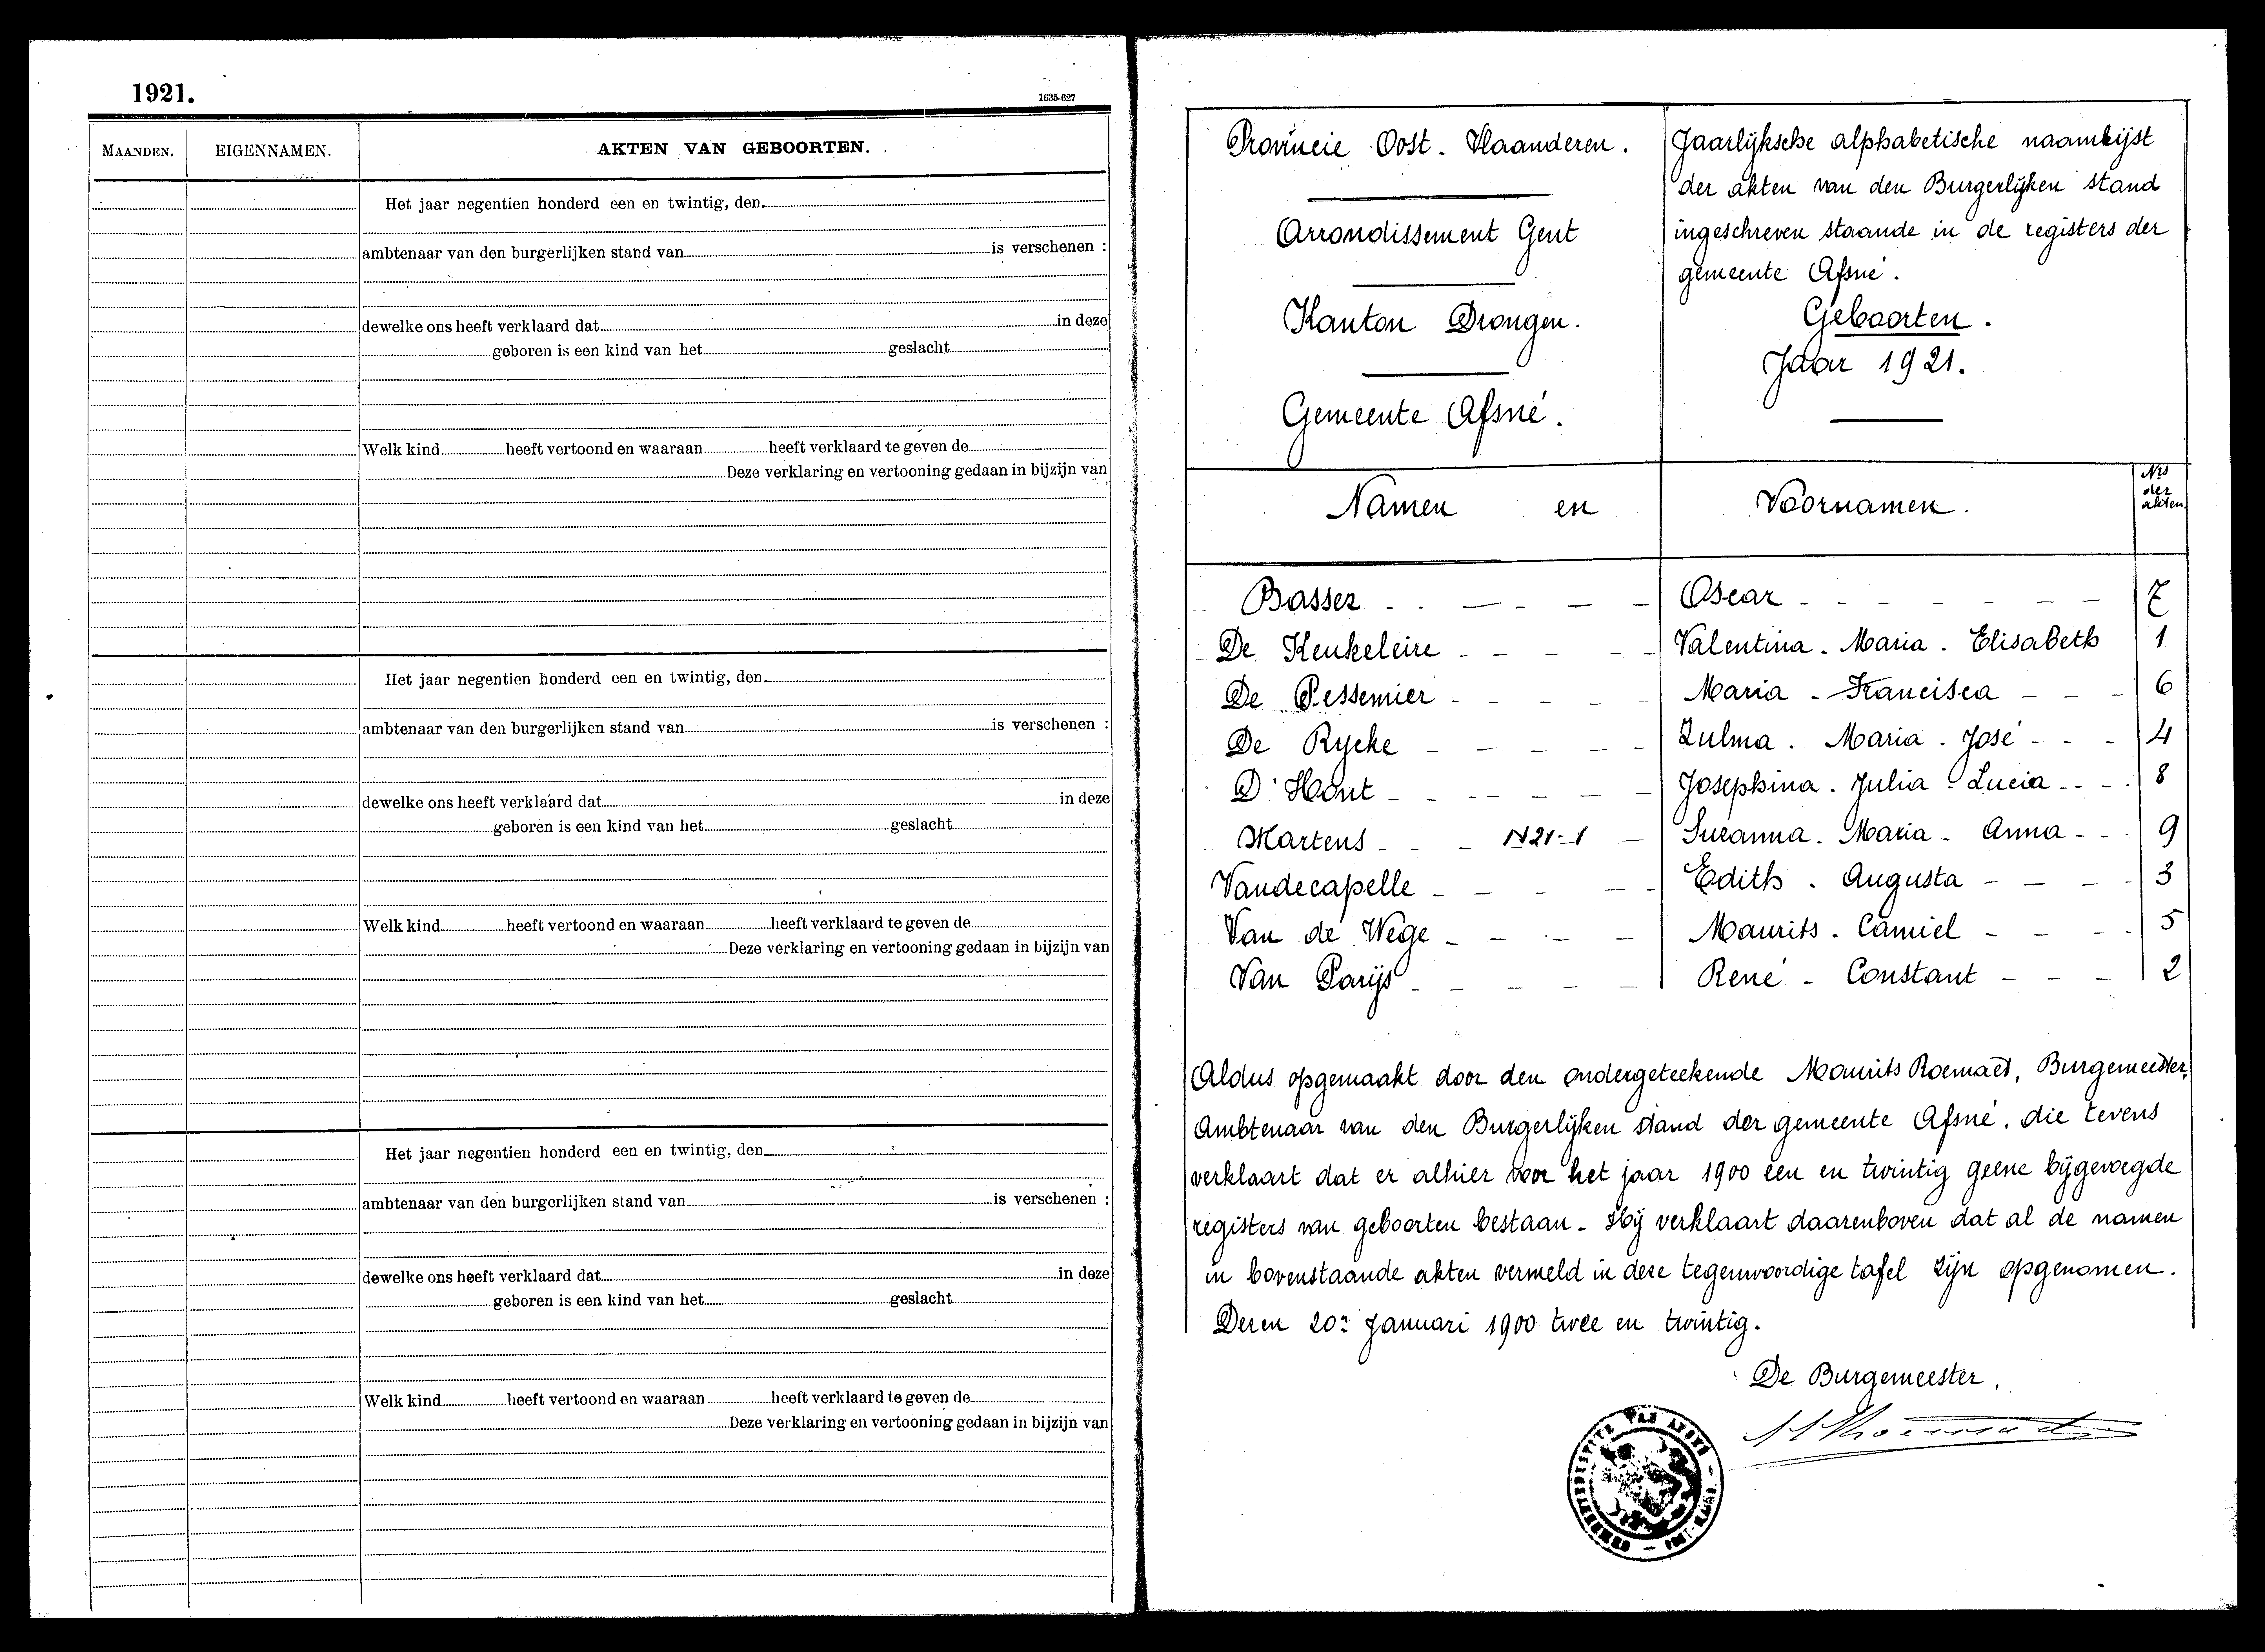 1921.
1635-627
MAANDEN. EIGENNAMEN. AKTEN VAN GEBOORTEN.
Het jaar negentien honderd een en twintig, den
ambtenaar van den burgerlijken stand van is verschenen :
dewelke ons heeft verklaard dat in deze
geboren is een kind van het geslacht
Welk kind heeft vertoond en waaraan heeft verklaard te geven de
Deze verklaring en vertooning gedaan in bijzijn van
Het jaar negentien honderd een en twintig, den
ambtenaar van den burgerlijken stand van is verschenen :
dewelke ons heeft verklaard dat in deze
geboren is een kind van het geslacht
Welk kind heeft vertoond en waaraan heeft verklaard te geven de
Deze verklaring en vertooning gedaan in bijzijn van
Het jaar negentien honderd een en twintig, den
ambtenaar van den burgerlijken stand van is verschenen :
dewelke ons heeft verklaard dat in deze
geboren is een kind van het geslacht
Welk kind heeft vertoond en waaraan heeft verklaard te geven de
Deze verklaring en vertooning gedaan in bijzijn van
Provincie Oost-Vlaanderen.
Arrondissement Gent
Kanton Drongen.
Gemeente Afsné.
Jaarlijksche alphabetische naamlijst
der akten van den Burgerlijken stand
ingeschreven staande in de registers der
gemeente Afsné.
Geboorten.
Jaar 1921.
Namen en Voornamen. Nrs der akten
Basser Oscar 7
De Keukeleire Valentina. Maria. Elisabeth 1
De Pessemier Maria - Francisca 6
De Rycke Zulma. Maria. José 4
D'Hont Josephina. Julia. Lucia 8
Martens N21-1 Suzanna. Maria. Anna 9
Vandecapelle Edith. Augusta 3
Van de Wege Maurits. Camiel 5
Van Parijs René - Constant 2
Aldus opgemaakt door den ondergeteekende Maurits Roemaet, Burgemeester,
Ambtenaar van den Burgerlijken stand der gemeente Afsné, die tevens
verklaart dat er alhier voor het jaar 1900 een en twintig geene bijgevoegde
registers van geboorten bestaan. Hij verklaart daarenboven dat al de namen
in bovenstaande akten vermeld in deze tegenwoordige tafel zijn opgenomen.
Dezen 20n Januari 1900 twee en twintig.
De Burgemeester,